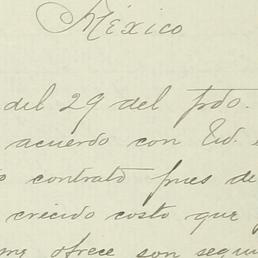 México
del 29 del pdo.
acuerdo con Ud.
contrato pues de
crecido costo que
ofrece son segui